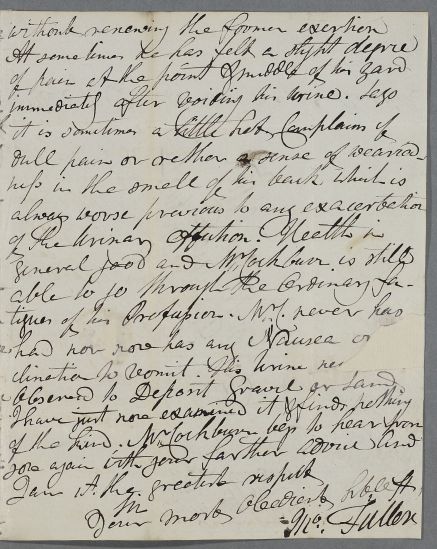 without renewing the former exertion
At some times he has felt a slight degree
of pain at the point & middle of his yard
immediately after voiding his urine. says
it is sometimes a little hot. Complains of
dull pain or rather a sense of wearied-
ness in the small of his back which is
always worse previous to any exacerbation
of the Urinary Affection. Health in
general good and Mr Cockburn is still
able to go through the Ordinary fa-
tigues of his Profession. Mr C. never has
had nor now has any Nausea or
clination to vomit. His Urine
Observed to Deposit Gravel or Sand
I have just now examined it & finds nothing
of the kind. Mr Cockburn begs to hear from
you again with your farther advice and
I am wt. the greatest respect
Dr Your most obedient
Jno. Fuller